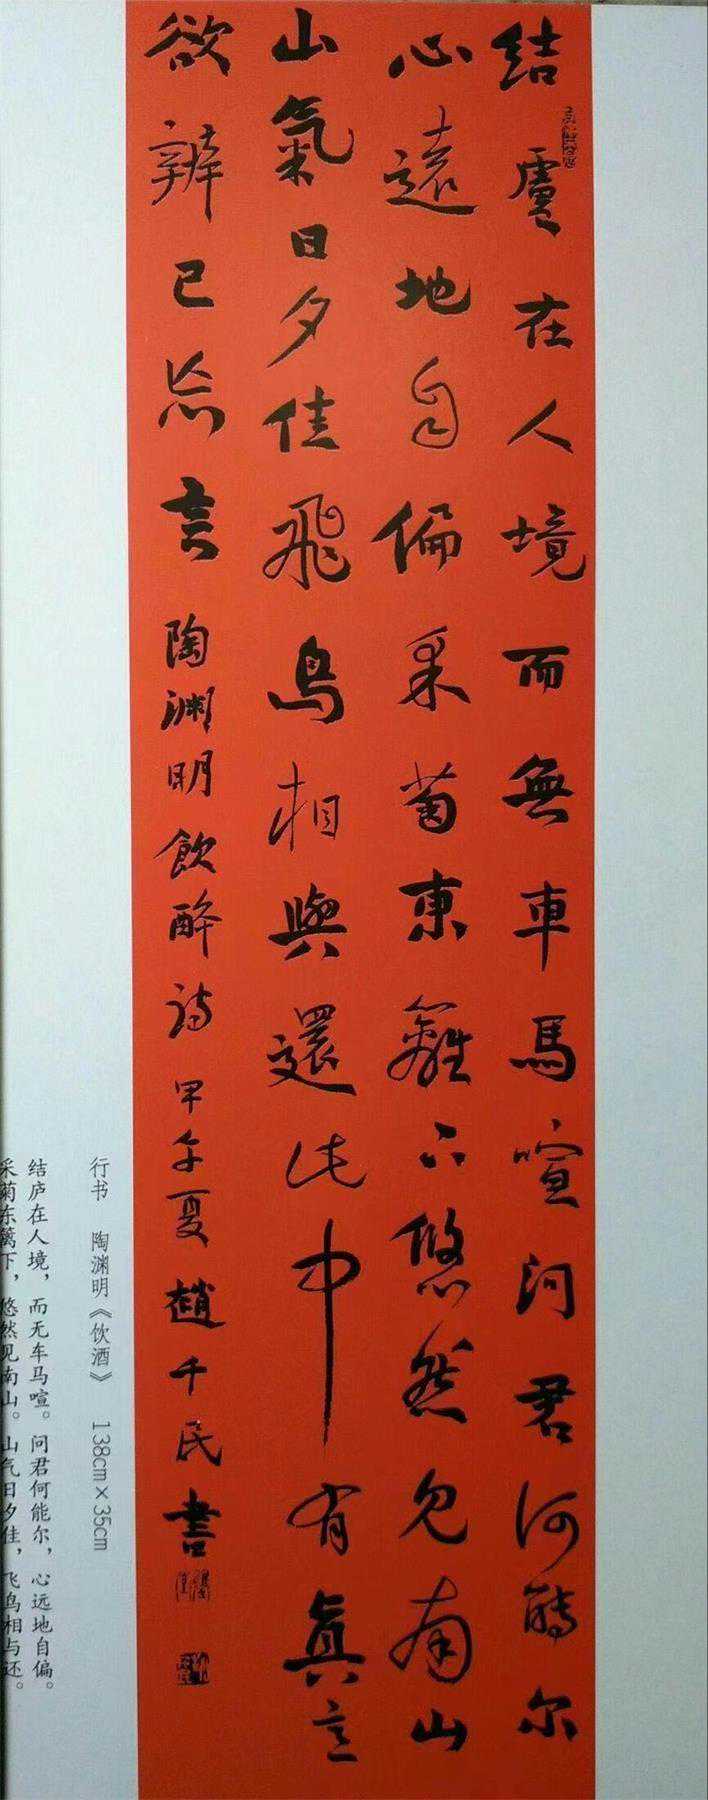 结廬在人境而無車馬喧问君何能尔
心遠地自偏采菊東籬下悠然见南山
山氣日夕佳飛鸟相與還此中有真意
欲辨已忘言 陶渊明飲醉诗 甲午夏 趙千民書
行书 陶渊明《饮酒》 138cm×35cm
结庐在人境，而无车马喧。问君何能尔，心远地自偏。
采菊东篱下，悠然见南山。山气日夕佳，飞鸟相与还。